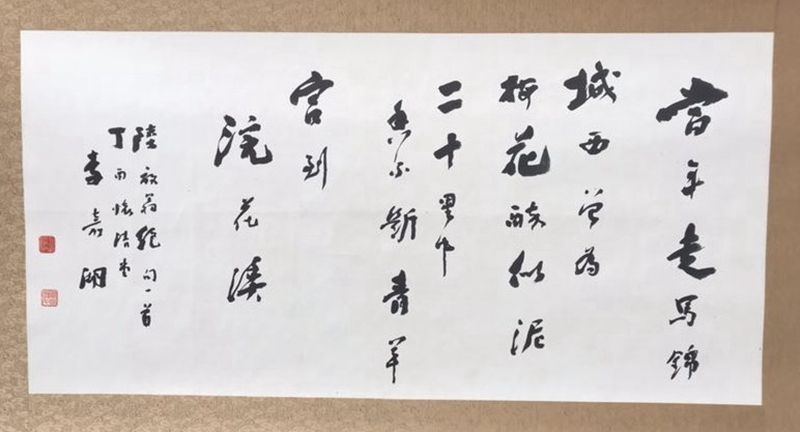 當年走馬錦
城西曾為
梅花醉似泥
二十里中
香不斷青羊
宮到
浣花溪
陸放翁絕句一首
丁酉
李嘉